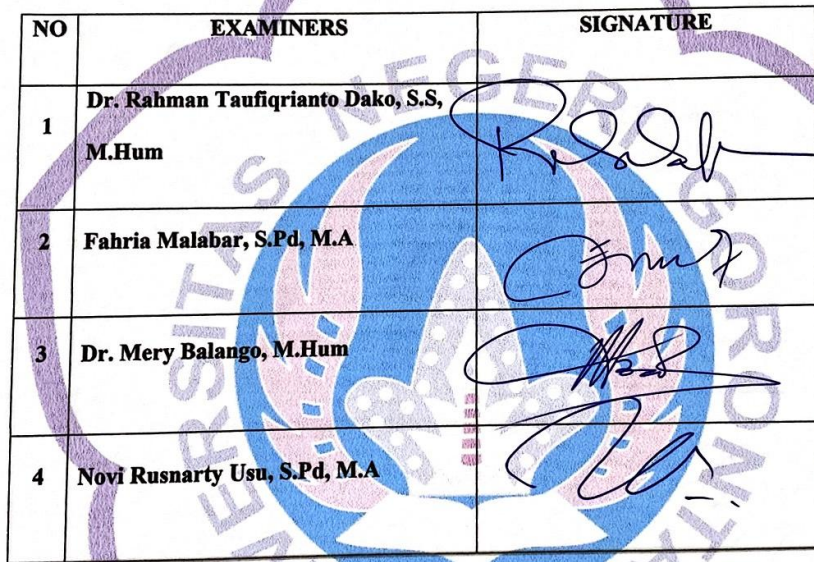 NO EXAMINERS SIGNATURE
1 Dr. Rahman Taufiqrianto Dako, S.S,
M.Hum
2 Fahria Malabar, S.Pd, M.A
3 Dr. Mery Balango, M.Hum
4 Novi Rusnarty Usu, S.Pd, M.A
UNIVERSITAS NEGERI GORONTALO